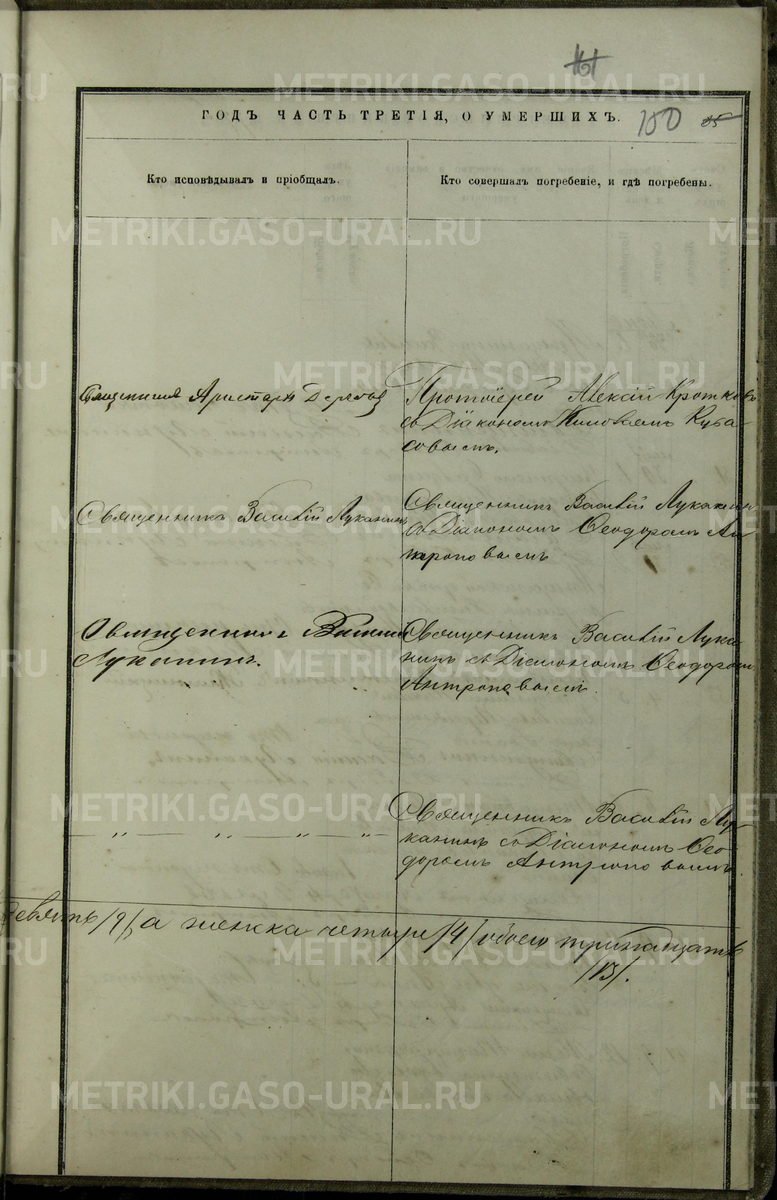 161
ГОДЪ ЧАСТЬ ТРЕТІЯ, О УМЕРШИХЪ. 150
Кто исповѣдывалъ и пріобщалъ.
Кто совершалъ погребеніе, и гдѣ погребены.
Священникъ Аристархъ
Протоіерей Алексій Кротковъ
съ Діакономъ Куба
совымъ.
Священникъ Василій Луканинъ
Священникъ Василій Луканинъ
съ Діакономъ Ѳеодоромъ Ан
троповымъ
Священникъ Василій
Луканинъ.
Священникъ Василій Лука
нинъ съ Діакономъ Ѳеодоромъ
Антроповымъ.
— „ — „ — „ — „ —
Священникъ Василій Лу-
канинъ съ Діакономъ Ѳео
доромъ Антроповымъ.
девять /9/, а женска четыре /4/ обоего тринадцать
/13/.
METRIKI.GASO-URAL.RU